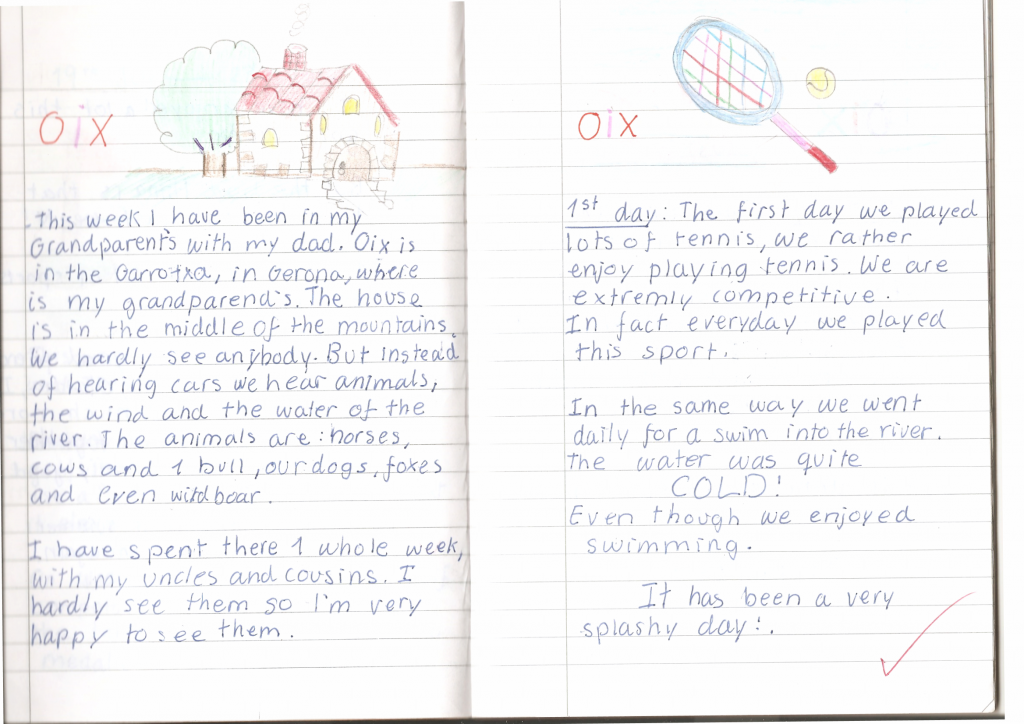 Oix
This week I have been in my
Grandparent's with my dad. Oix is
in the Garrotxa, in Gerona, where
is my grandparend's. The house
is in the middle of the mountains.
We hardly see anybody. But instead
of hearing cars we hear animals,
the wind and the water of the
river. The animals are: horses,
cows and 1 bull, our dogs, foxes
and even wild boar.
I have spent there 1 whole week,
with my uncles and cousins. I
hardly see them so I'm very
happy to see them.
Oix
1st day: The first day we played
lots of tennis, we rather
enjoy playing tennis. We are
extremly competitive.
In fact everyday we played
this sport.
In the same way we went
daily for a swim into the river.
The water was quite
COLD!
Even though we enjoyed
swimming.
It has been a very
splashy day!.